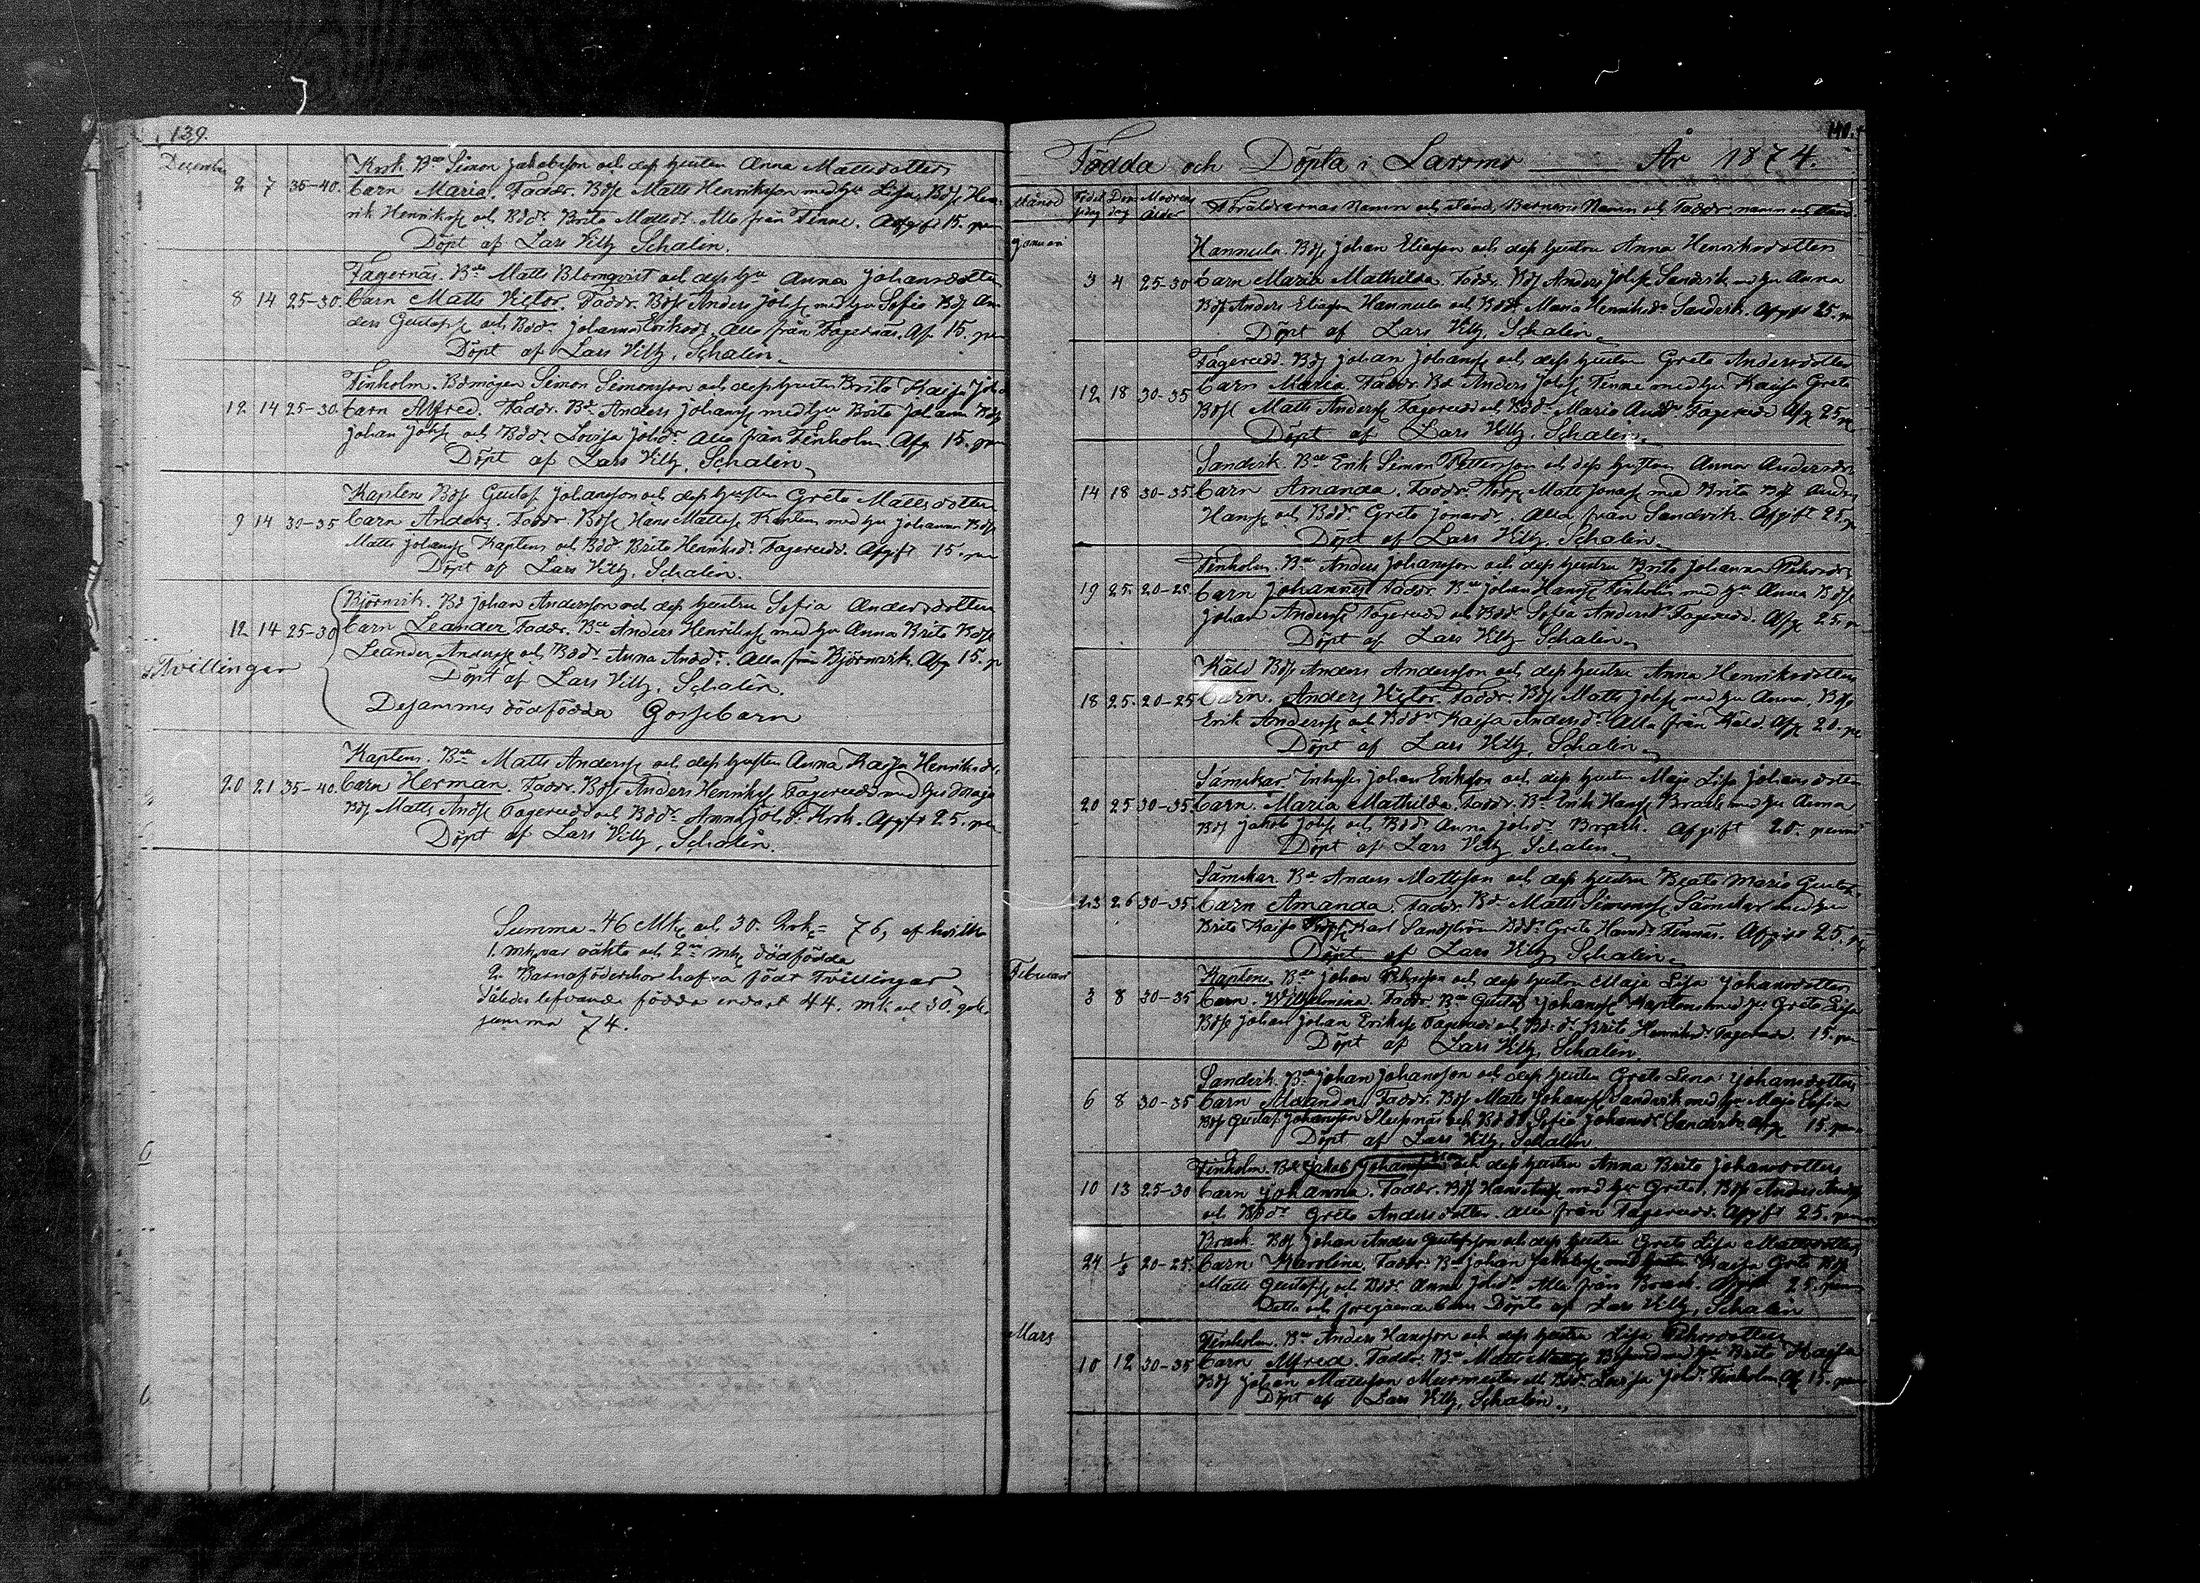 139.
December
2 7 35-40. Krok Bde Simon Jakobsson och dess hustru Anna Mattsdotter
barn Maria. Faddr. Bdsn Matts Henriksson med hu Lisa, Bdsn Hen-
rik Henrikss och Bddr Brita Mattsdr. Alla från Finne. Afgift 15. pen
Döpt af Lars Vilh. Schalin.
Fagernäs. Bde Matts Blomqvist och dess hu Anna Johansdotter
8 14 25-30. barn Matts Victor. Faddr. Bdsn Anders Johss med hu Sofia Bds An-
ders Gustafss och Bddr Johanna Eriksdr. Alla från Fagernäs. Af. 15. pen
Döpt af Lars Vilh. Schalin.
Finholm. Bdmågen Simon Simonsson och dess hustru Brita Kajsa Joh
12 14 25-30. barn Alfred. Faddr. Bde Anders Johanss med hu Brita Johanna Bdss
Johan Johss och Bddr Lovisa Johdr. Alla från Finholm. Afg 15. pen
Döpt af Lars Vilh. Schalin.
Kaptens Bdsn Gustaf Johansson och dess hustru Greta Mattsdotter
9 14 30-35 barn Anders. Faddr. Bdsn Hans Mattss Kaptens med hu Johanna Bdss
Matts Johanss Kaptens och Bddr Brita Henriksdr Fagerudd. Afgift 15. pen
Döpt af Lars Vilh. Schalin.
Björnvik. Bd Johan Andersson och dess hustru Sofia Andersdotter
12 14 25-30 barn Leander Faddr. Bde Anders Henrikss med hu Anna Brita Bdss
Leander Anderss och Bddr Anna Andr. Alla från Björnvik. Afg 15. p
Tvillingar
Döpt af Lars Vilh. Schalin.
Desammes dödfödda Gossebarn
Kaptens. Bde Matts Anderss och dess hustru Anna Kajsa Henriksdr.
20 21 35-40. barn Herman. Faddr. Bdss Anders Henrikss Fagerudd med hu Maja
Bds Matts Andss Fagerudd och Bddr Anna Johdr Krok. Afgift 25. pen
Döpt af Lars Vilh. Schalin.
Summa 46 Mk och 30. Qvk = 76, af hvilka
1. mk var oäkta och 2ne mk dödfödda
2. Barnaföderskor hafva födt Tvillingar
Således lefvande födda endast 44. mk och 30. qvk.
summa 74.
Födda och Döpta i Larsmo År 1874.
Månad Födelsedag Dopdag Modrens ålder Föräldrarnas Namn och stånd, Barnens Namn och Faddr. namn och stånd
Januari
Hannula. Bdss Johan Eliasson och dess hustru Anna Henriksdotter
3 4 25-30 barn Maria Mathilda. Faddr. Bds Anders Johss Sandvik med hu Anna
Bds Anders Eliasson Hannula och Bddr Maria Henriksdr Sandvik. Afgift 25. p
Döpt af Lars Vilh. Schalin.
Fagerudd. Bds Johan Johanss och dess hustru Greta Andersdotter
12 18 30-35 barn Maria. Faddr. Bd Anders Johss Finne med hu Kajsa Greta
Bdss Matts Anderss Fagerudd och Bddr Maria Andr Fagerudd Afg 25. p
Döpt af Lars Vilh. Schalin.
Sandvik. Bde Erik Simon Pettersson och dess hustru Anna Andersdr
14 18 30-35. barn Amanda. Faddr. Torp Matts Jonass med Brita Bds Anders
Hanss och Bddr Greta Jonasdr. Alla från Sandvik. Afgift 25. p
Döpt af Lars Vilh. Schalin.
Finholm. Bde Anders Johansson och dess hustru Brita Johanna Pehrsdr
19 25. 20-25. barn Johannes Faddr. Bde Johan Hanss Finholm med hu Anna Bdss
Johan Anderss Fagerudd och Bddr Sofia Andersdr Fagerudd. Afg 25. p
Döpt af Lars Vilh. Schalin.
Käld Bdss Anders Andersson och dess hustru Anna Henriksdotter
18 25. 20-25 barn. Anders Victor. Faddr. Bds Matts Johss med hu Anna, Bdss
Erik Anderss och Bddr Kajsa Andersdr. Alla från Käld. Afg 20. p
Döpt af Lars Vilh. Schalin.
Sämskar Inhyses Johan Eriksson och dess hustru Maja Lisa Johansdotter
20 25 30-35 barn. Maria Mathilda, Faddr. Bde Erik Hanss Brask med hu Anna
Bds Jakob Johss och Bddr Anna Johsdr Brask. Afgift 20. penni
Döpt af Lars Vilh. Schalin.
Sämskar Bde Anders Mattsson och dess hustru Beata Maria Gustafs
23 26 30-35. barn Amanda. Faddr. Bd Matts Simonss Sämskar med hu
Brita Kajsa Karl Sandström Bddr Greta Hansdr Finnäs. Afgift 25. p
Döpt af Lars Vilh. Schalin.
Februari
Kaptens. Bde Johan Pehrsson och dess hustru Maja Lisa Johansdotter
3 8 30-35 barn. Wilhelmina. Faddr. Bde Gustaf Johanss Kaptens med hu Greta Lisa
Bdss Johan Johan Erikss Fagerudd och Bddr Brita Henriksdr Fagerudd. 15. pen
Döpt af Lars Vilh. Schalin.
Sandvik. Bde Johan Johansson och dess hustru Greta Lena Johansdotter
6 8 30-35 barn Faddr. Bds Matts Johanss Sandvik med hu Maja Sofia
Bds Gustaf Johansson och Bddr Sofia Johansdr Sandvik Afg 15. pen
Döpt af Lars Vilh. Schalin
Finholm. Bde Jakob Johansson och dess hustru Anna Brita Johansdotter
10 13 25-30 barn Johanna. Faddr. Bds Hans Andss med hu Greta, Bdss Anders Andss
och Bddr Greta Andersdotter. Alla från Fagerudd. Afgift 25. pen
Brask Bds Johan Anders Gustafsson och dess hustru Greta Lisa Mattsdotter
24 1/3 20-25. barn Karolina, Faddr. Bde Johan Jakobss med hustru Kajsa Greta Bdss
Matts Gustafss och Bddr Anna Johdr. Alla från Brask. Afgift 25. penni
Detta och föregående barn Döpta af Lars Vilh. Schalin
Mars
Finholm. Bde Anders Hansson och dess hustru Lisa Pehrsdotter
10 12 30-35 barn Alfred. Faddr. Bde Matts med hu Brita Kajsa
Bds Johan Mattsson Murmester och Bddr Lovisa Johdr Finholm Af 15. pen
Döpt af Lars Vilh. Schalin.